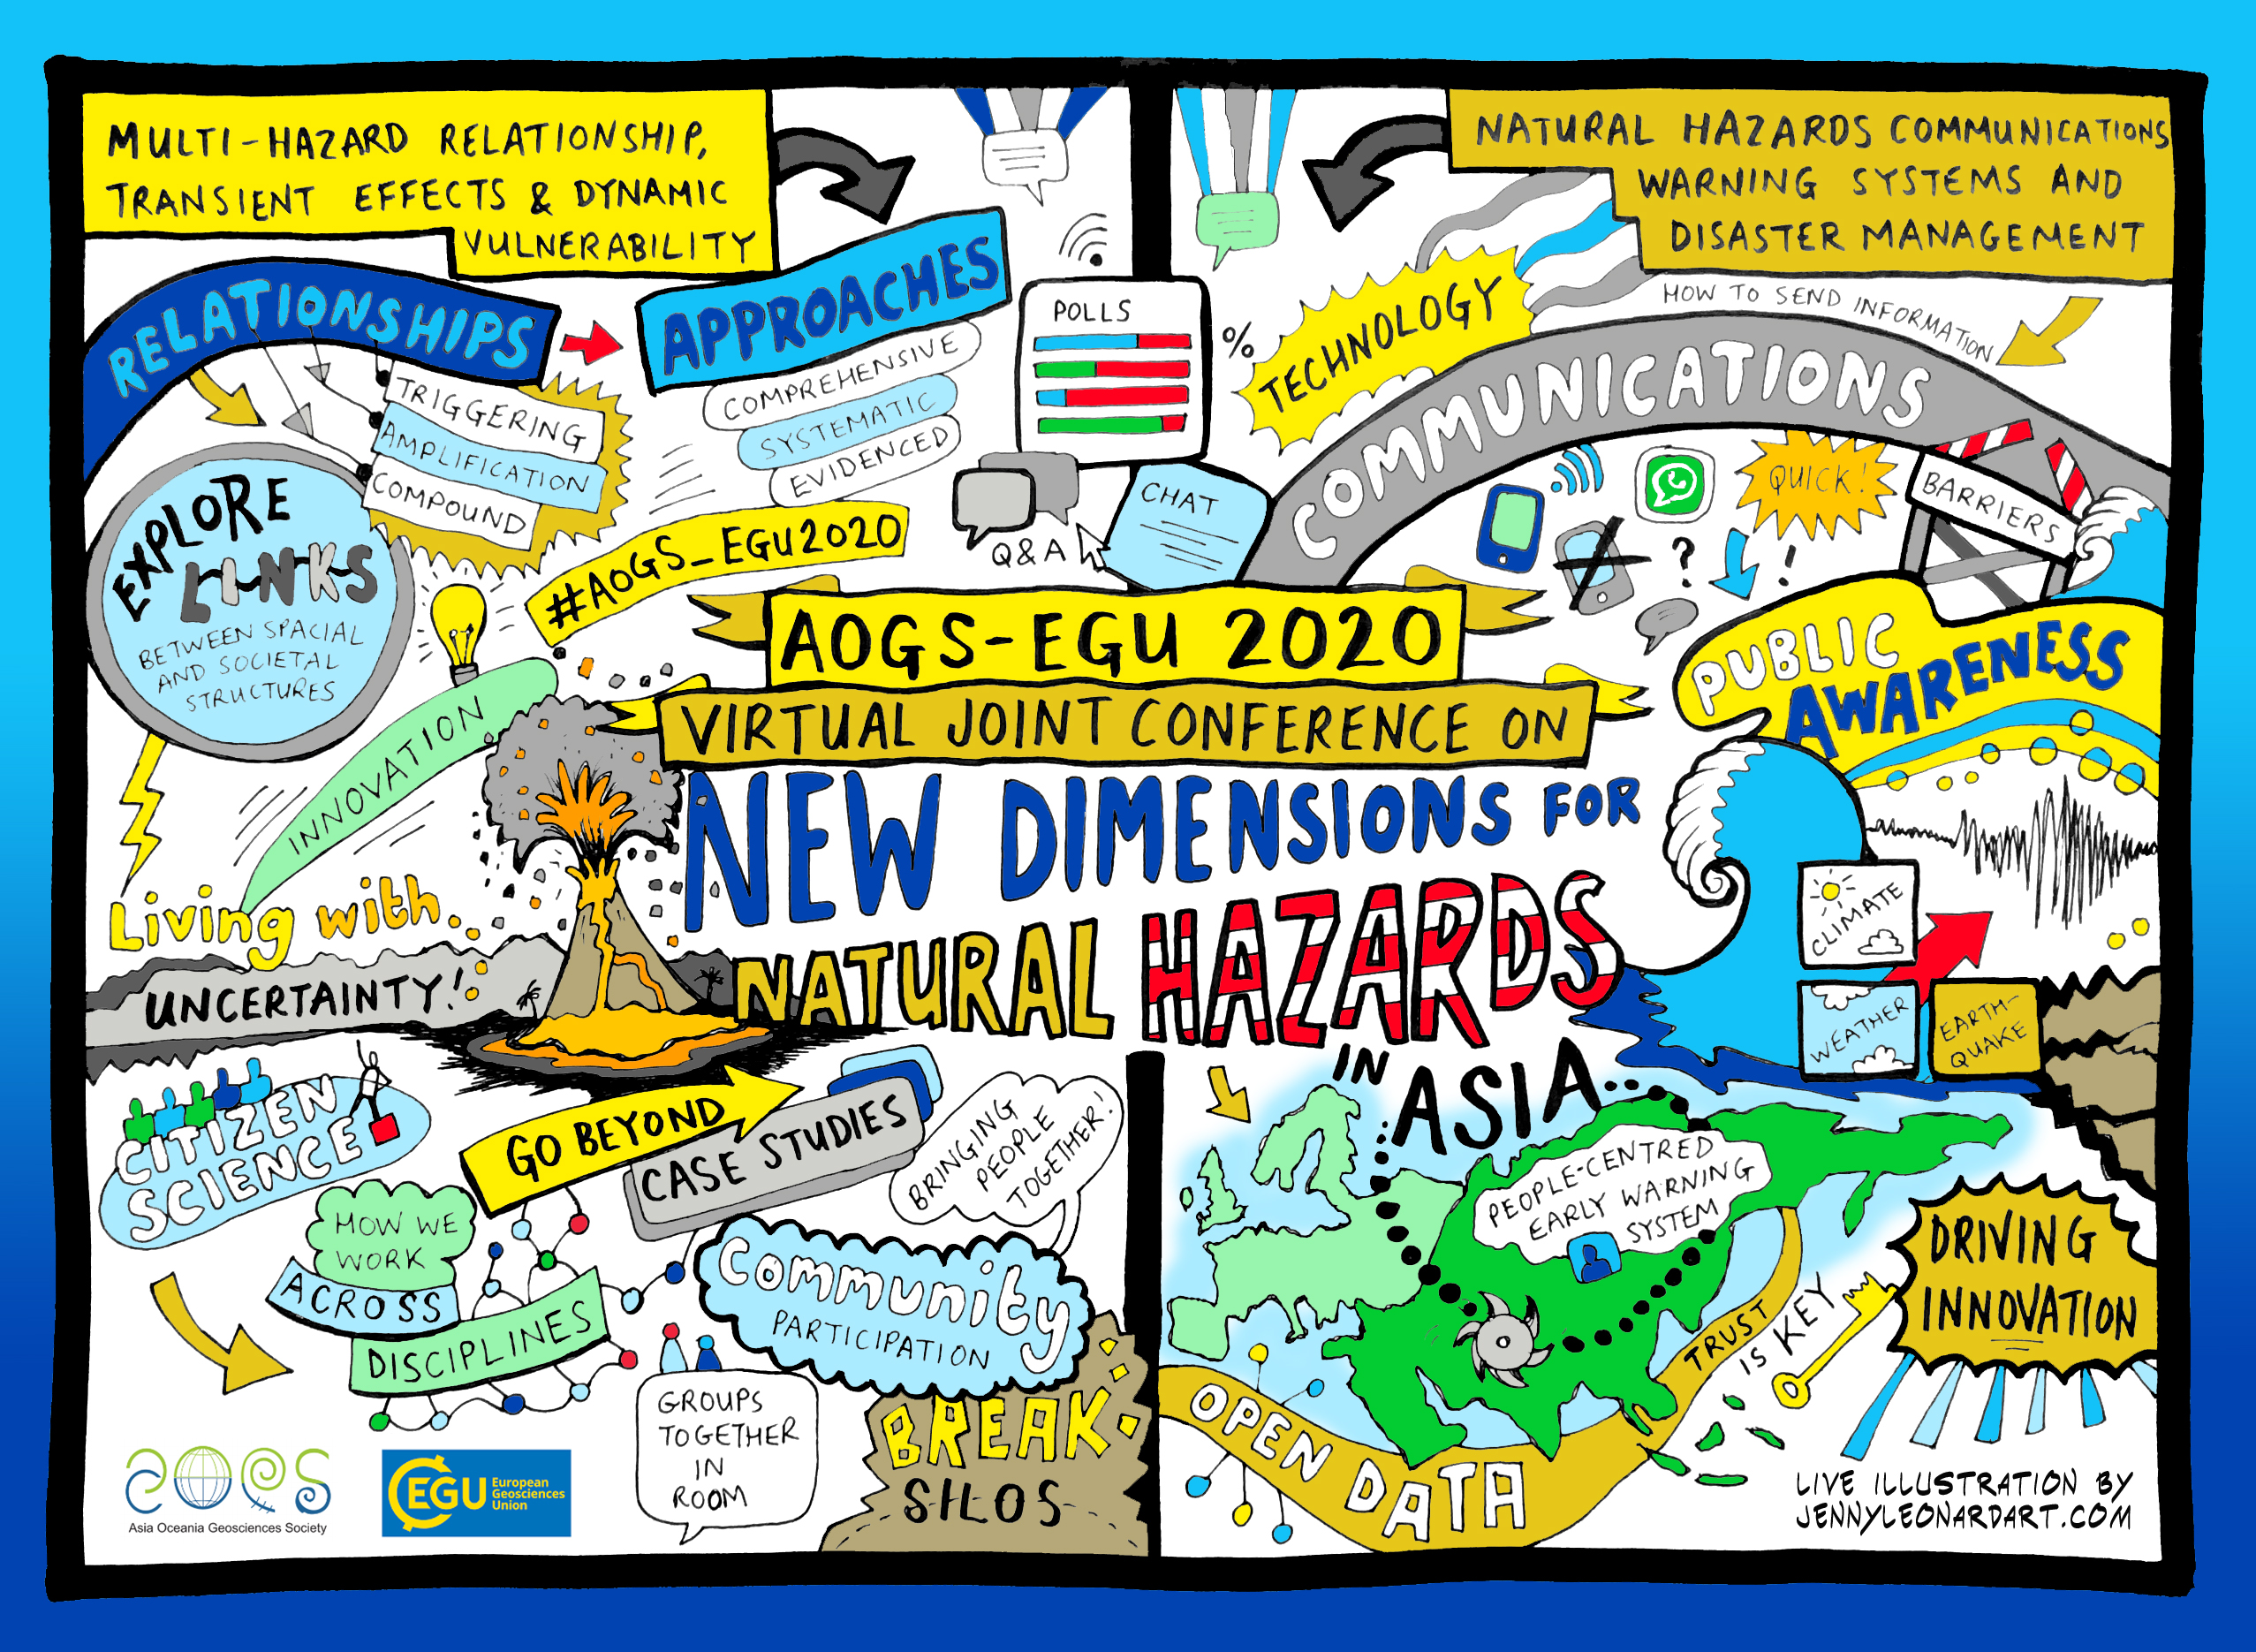 MULTI-HAZARD RELATIONSHIP,
TRANSIENT EFFECTS & DYNAMIC
VULNERABILITY
RELATIONSHIPS
APPROACHES
TRIGGERING
AMPLIFICATION
COMPOUND
COMPREHENSIVE
SYSTEMATIC
EVIDENCED
EXPLORE
LINKS
BETWEEN SPACIAL
AND SOCIETAL
STRUCTURES
#AOGS_EGU2020
INNOVATION
POLLS
%
Q&A
CHAT
NATURAL HAZARDS COMMUNICATIONS
WARNING SYSTEMS AND
DISASTER MANAGEMENT
TECHNOLOGY
HOW TO SEND INFORMATION
COMMUNICATIONS
QUICK!
BARRIERS
?
!
PUBLIC
AWARENESS
AOGS-EGU 2020
VIRTUAL JOINT CONFERENCE ON
NEW DIMENSIONS FOR
NATURAL HAZARDS
IN ASIA...
Living with...
UNCERTAINTY!
CLIMATE
WEATHER
EARTH-
QUAKE
CITIZEN
SCIENCE
GO BEYOND
CASE STUDIES
BRINGING
PEOPLE
TOGETHER!
HOW WE
WORK
ACROSS
DISCIPLINES
Community
PARTICIPATION
GROUPS
TOGETHER
IN
ROOM
BREAK
SILOS
PEOPLE-CENTRED
EARLY WARNING
SYSTEM
OPEN DATA
TRUST
IS KEY
DRIVING
INNOVATION
AOGS
Asia Oceania Geosciences Society
EGU
European
Geosciences
Union
LIVE ILLUSTRATION BY
JENNYLEONARDART.COM